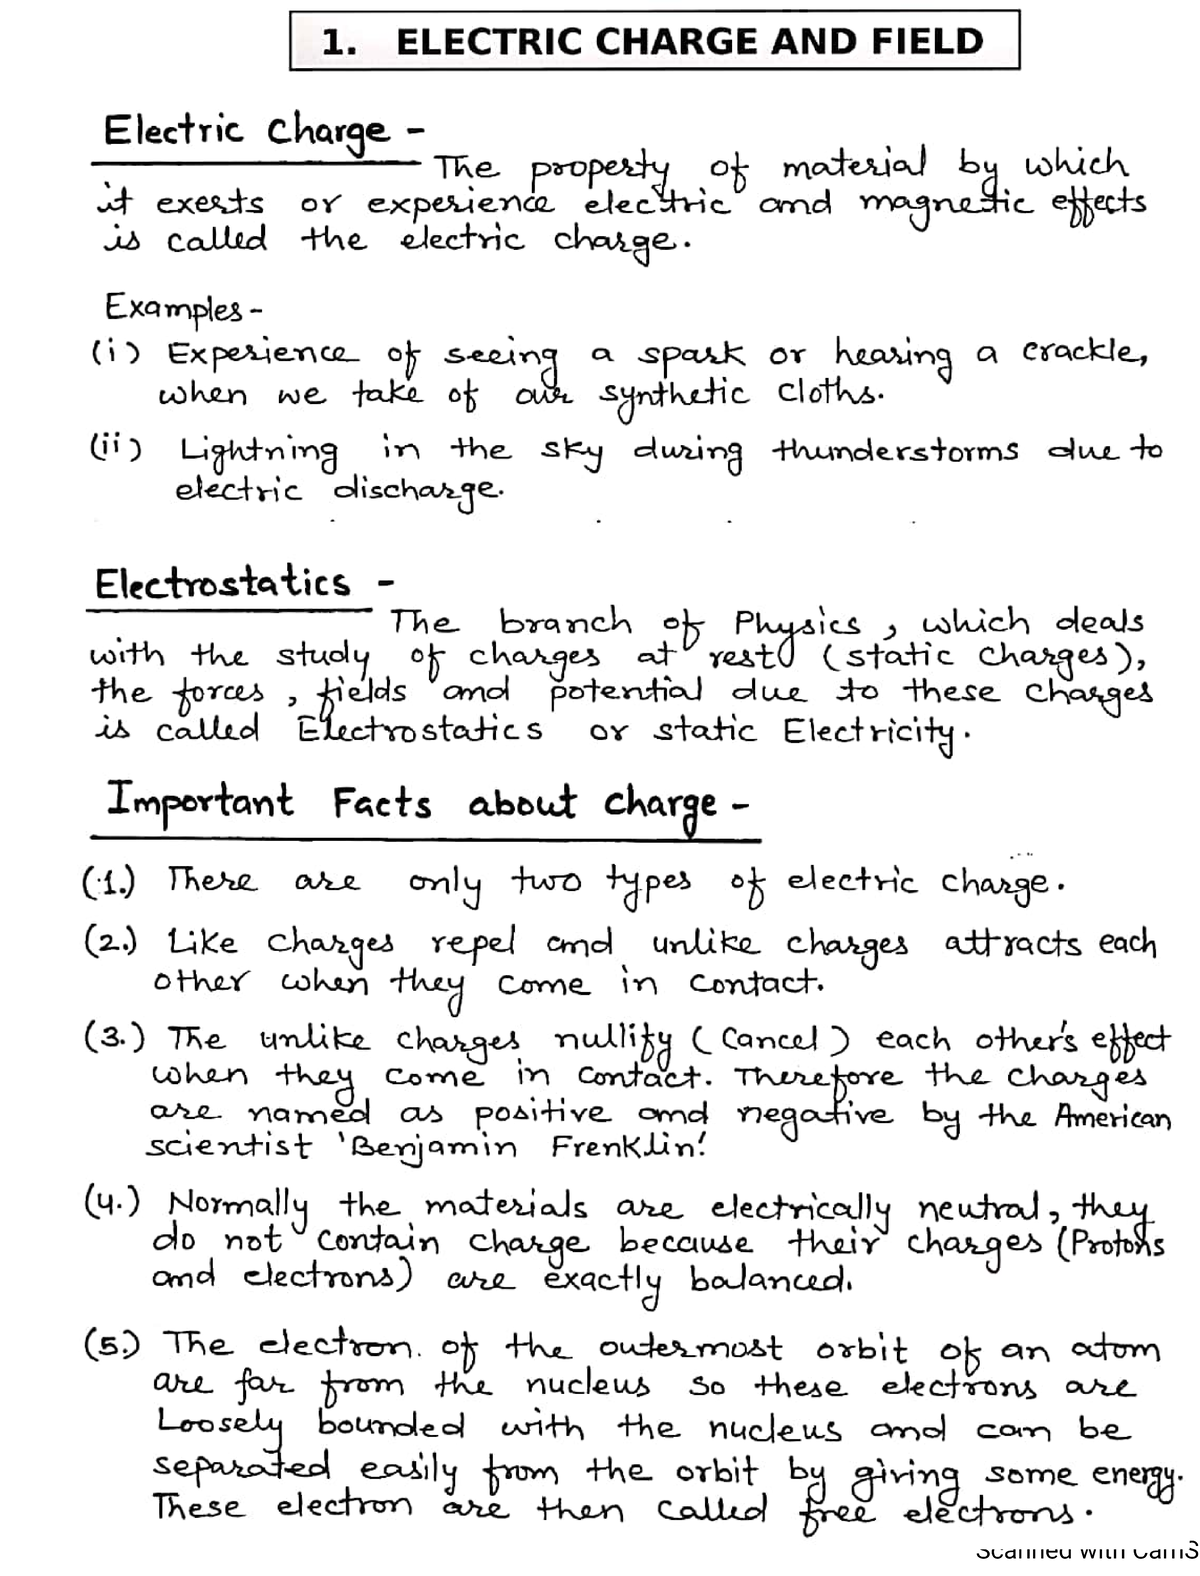 1. ELECTRIC CHARGE AND FIELD
Electric Charge -
The property of material by which
it exerts or experience electric and magnetic effects
is called the electric charge.
Examples -
(i) Experience of seeing a spark or hearing a crackle,
when we take of our synthetic cloths.
(ii) Lightning in the sky during thunderstorms due to
electric discharge.
Electrostatics -
The branch of Physics, which deals
with the study of charges at rest (static charges),
the forces, fields and potential due to these charges
is called Electrostatics or static Electricity.
Important Facts about charge -
(1.) There are only two types of electric charge.
(2.) Like charges repel and unlike charges attracts each
other when they come in contact.
(3.) The unlike charges nullify (Cancel) each other's effect
when they come in contact. Therefore the charges
are named as positive and negative by the American
scientist 'Benjamin Frenklin'.
(4.) Normally the materials are electrically neutral, they
do not contain charge because their charges (Protons
and electrons) are exactly balanced.
(5.) The electron. of the outermost orbit of an atom
are far from the nucleus so these electrons are
Loosely bounded with the nucleus and can be
separated easily from the orbit by giving some energy.
These electron are then called free electrons.
Scanned with CamS